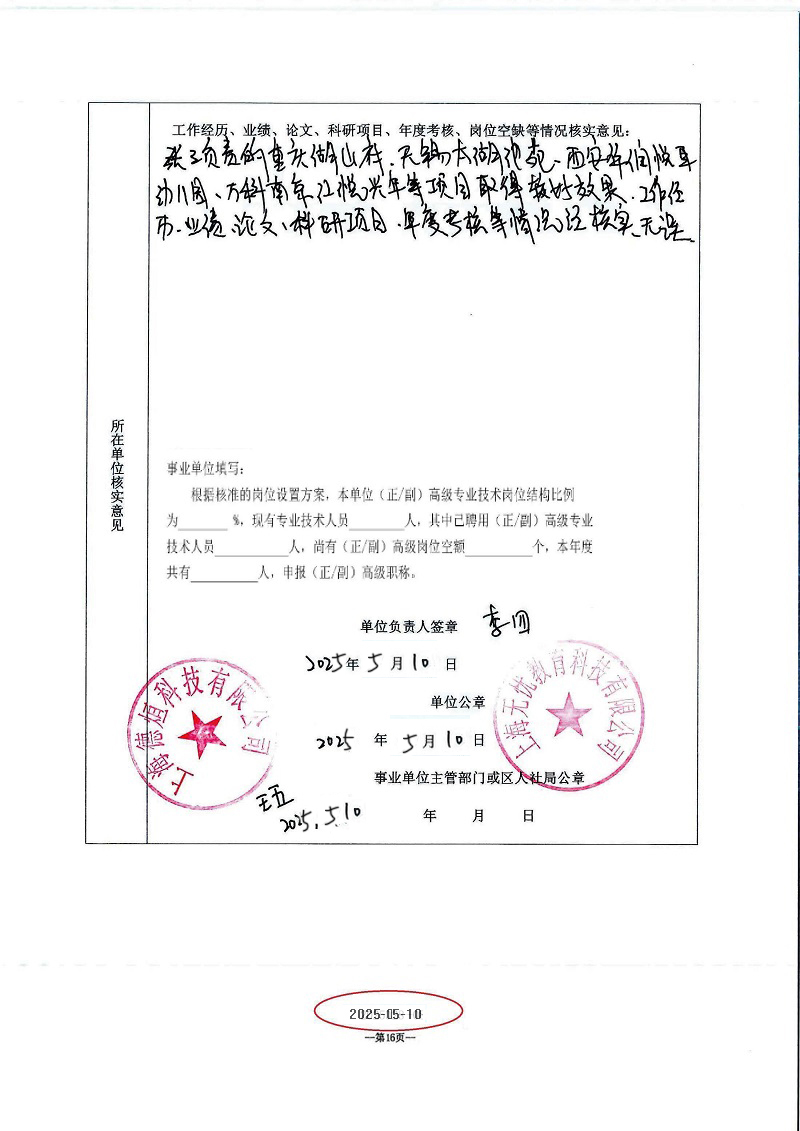 工作经历、业绩、论文、科研项目、年度考核、岗位空缺等情况核实意见：
张三负责的重庆湖山村、无锡太湖 苑、西安华润悦
幼儿园、万科南京江悦兴年等项目取得较好效果、工作经
历、业绩、论文、科研项目、年度考核等情况经核实、无误。
所在单位核实意见
事业单位填写：
根据核准的岗位设置方案，本单位（正/副）高级专业技术岗位结构比例
为 %，现有专业技术人员 人，其中已聘用（正/副）高级专业
技术人员 人，尚有（正/副）高级岗位空额 个，本年度
共有 人，申报（正/副）高级职称。
单位负责人签章 李四
2025年5月10日
单位公章
2025年5月10日
事业单位主管部门或区人社局公章
年 月 日
上海德恒科技有限公司
上海无忧教育科技有限公司
王五
2025.5.10
2025-05-10
—第16页—